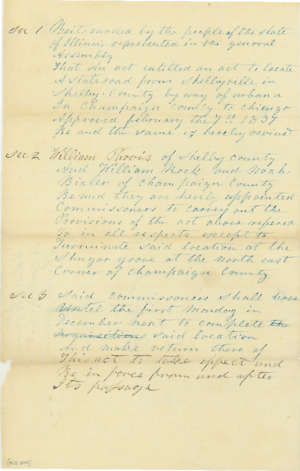 Sec 1 Beit enacted by the people of the state
of Illinois represented in the general
Assembly
That an act entitled an act to locate
a state road from Shellyville in
Shelby County by way of urbana
In Champaign county to chicago
Approved february the 7th 1837
Be and the same is hereby revived
Sec 2 William of Shelby county
And William Mock and Noah
Bixler of Champaign County
Be and they are hereby appointed
Commissioners to carry out the
Provisions of the act above refered
to in all respects except to
Terminate said location at the
Shugar grove at the north east
Corner of Champaign County
Sec 3 Said commissoners shall have
until the first Monday in
December next to complete the
said location
And make return there of
This act to take effect and
Be in force from and after
Its passage